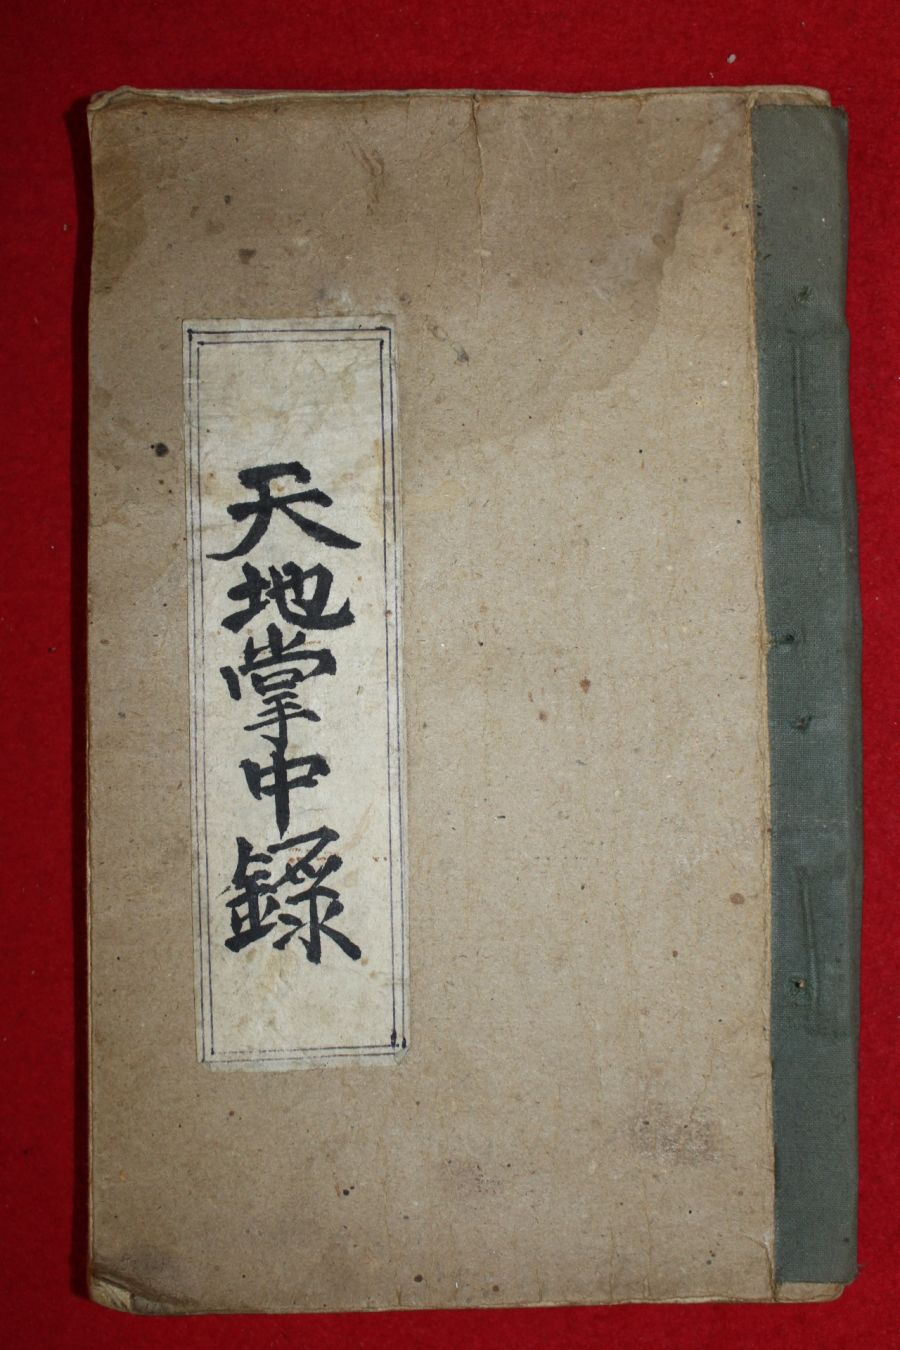 天地掌中錄